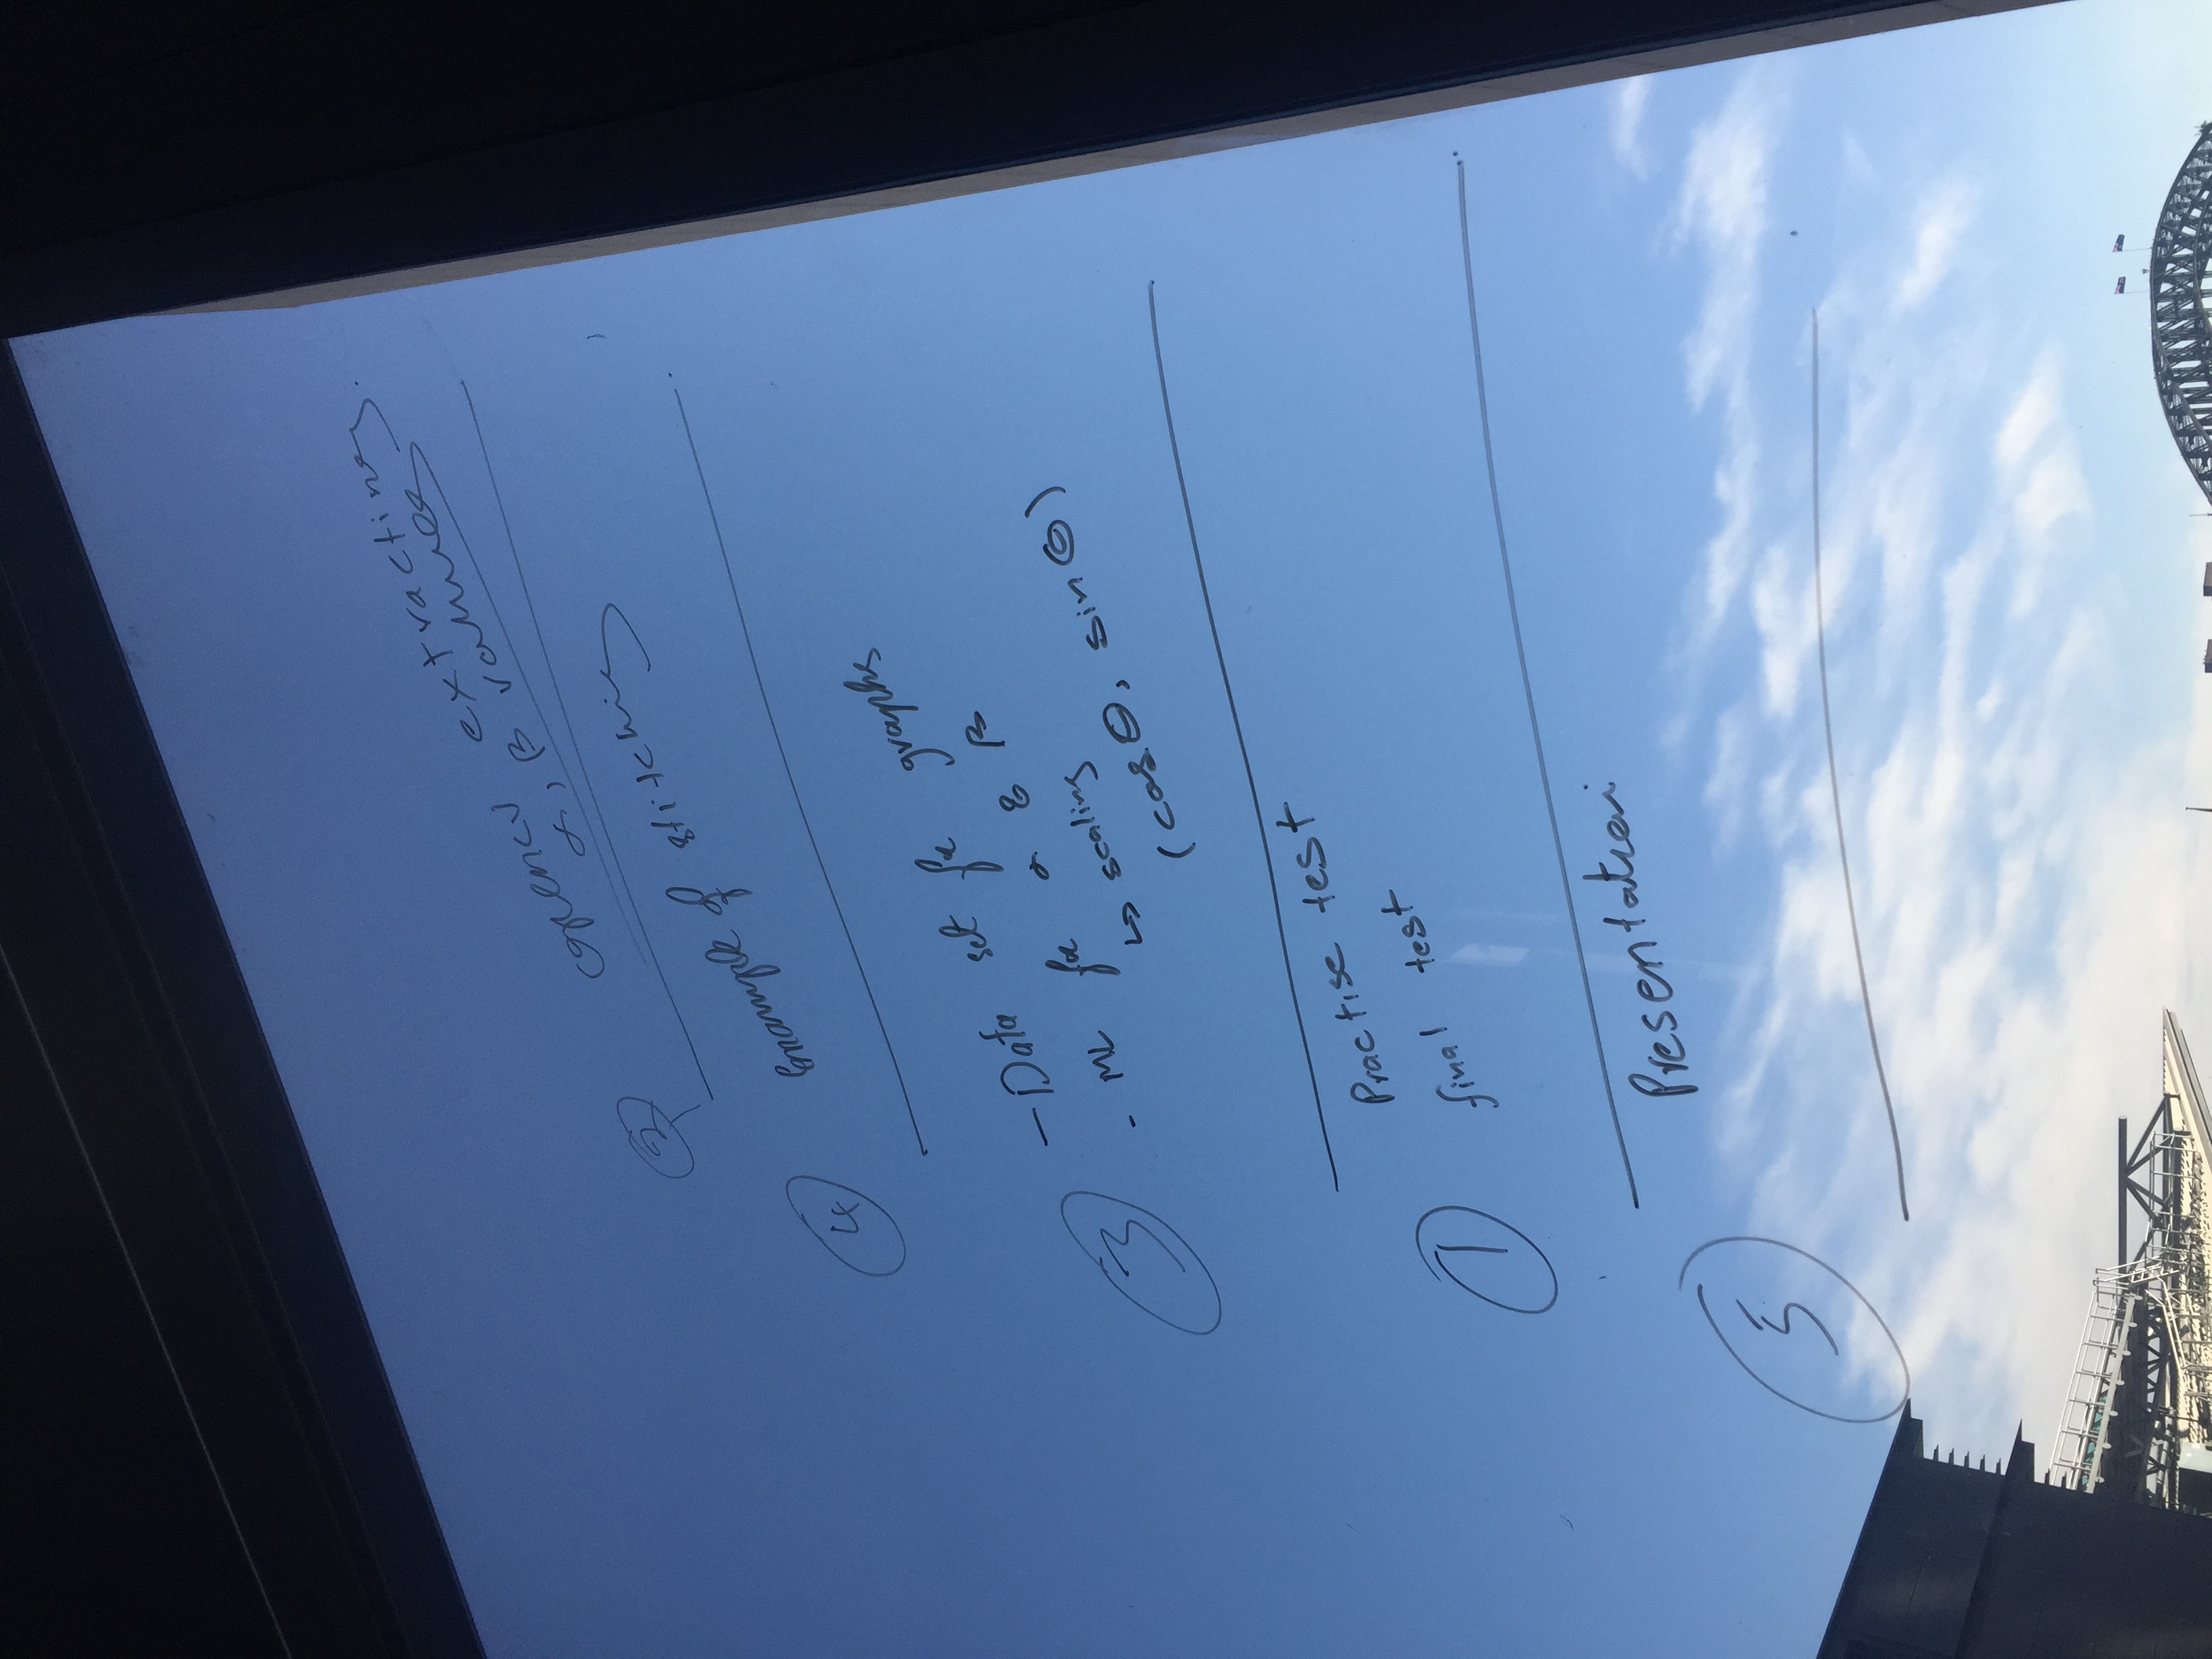 opencv extracting
α, β values
2
Example of stitching
4
- Data set for graphs
- ML for α & β
↳ scaling
(cos θ, sin θ)
3
Practise test
final test
1
Presentation
5